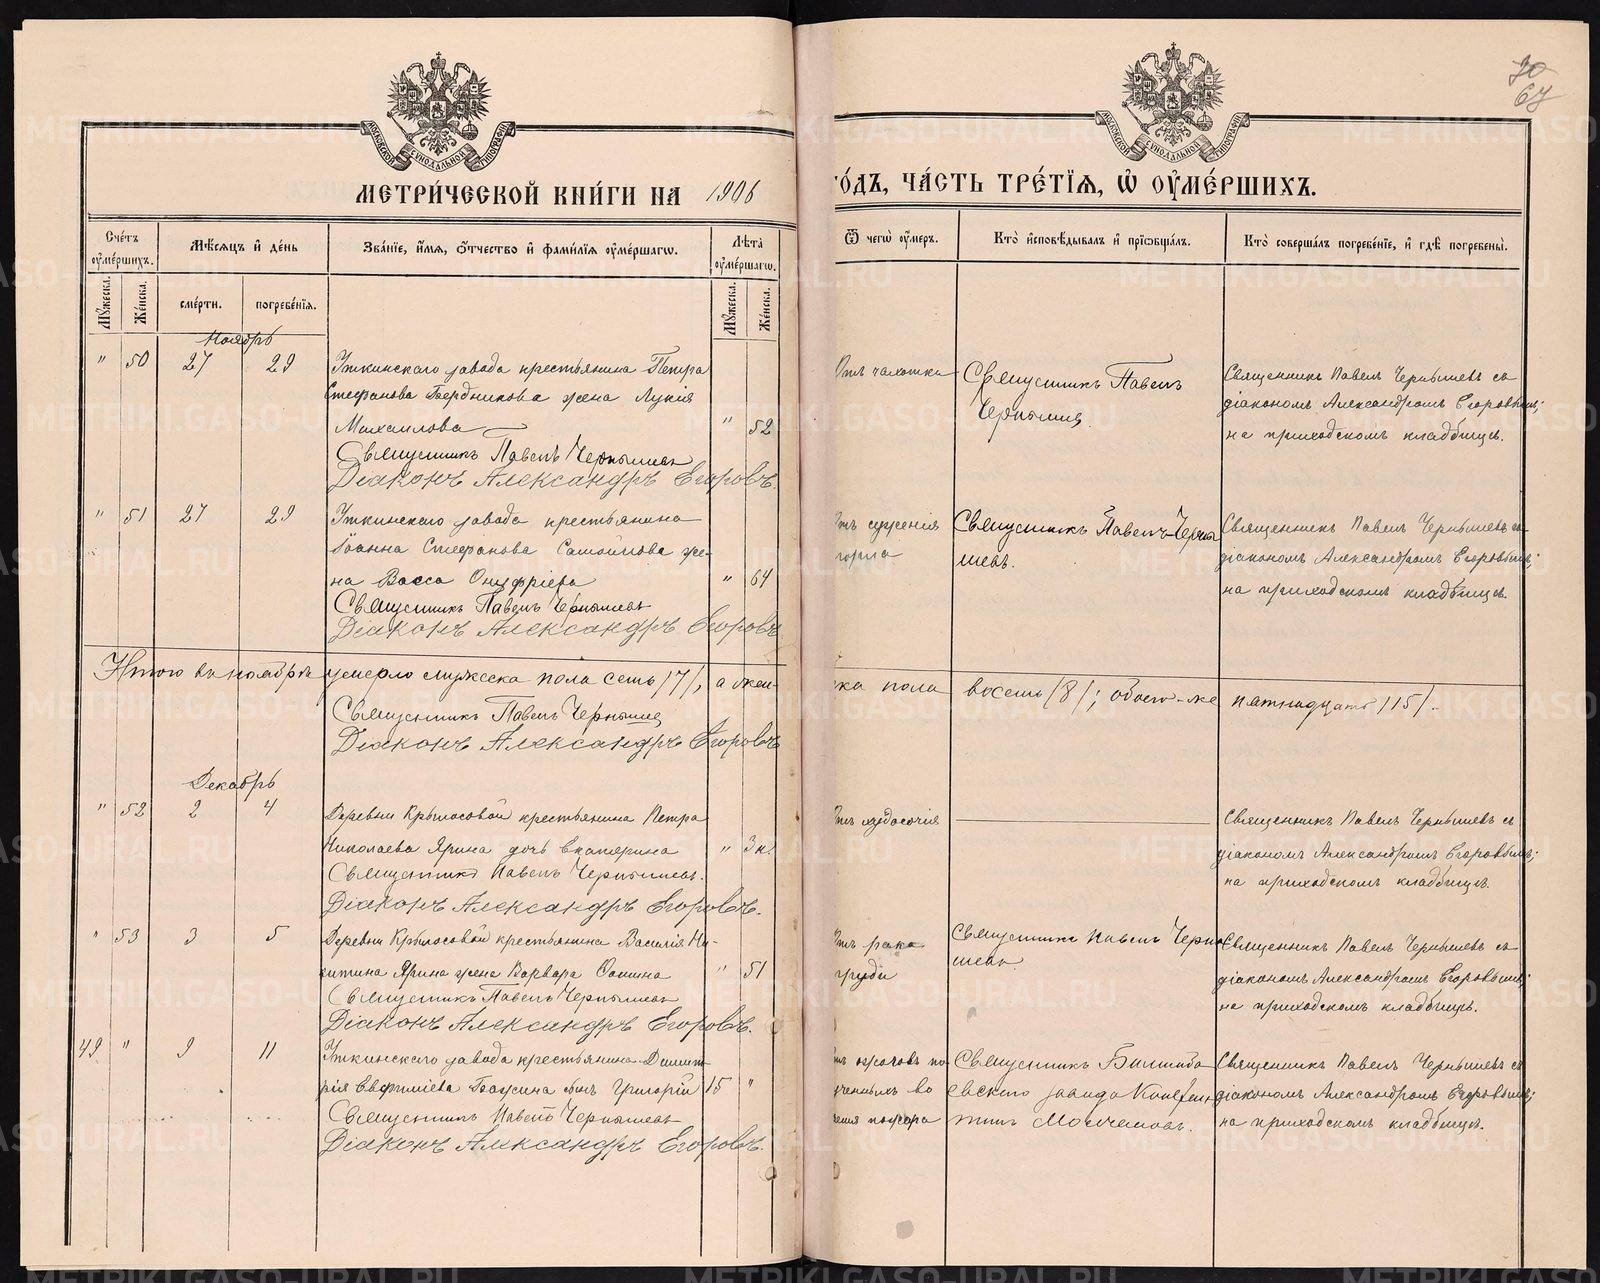 70
67
МОСКОВСКОЙ СѴНОДАЛЬНОЙ ТИПОГРАФІИ
МОСКОВСКОЙ СѴНОДАЛЬНОЙ ТИПОГРАФІИ
МЕТРИ́ЧЕСКОЙ КНИ́ГИ НА 1906
ГО́ДЪ, ЧА́СТЬ ТРЕ́ТІѦ, Ѡ҆ ОУ҆МЕ́РШИХЪ.
Сче́тъ оу҆ме́ршихъ.
Мѣ́сяцъ и҆ де́нь
Зва́ніе, и҆́мѧ, ѻ҆́тчество и҆ фами́лія оу҆ме́ршагѡ.
Лѣ́та оу҆ме́ршагѡ.
Ѿ чегѡ̀ оу҆́меръ.
Кто̀ и҆сповѣ́дывалъ и҆ прїѡбща́лъ.
Кто̀ соверша́лъ погребе́ніе, и҆ гдѣ̀ погребены̀.
Мꙋ́жеска.
Же́нска.
сме́рти.
погребе́нія.
Мꙋ́жеска.
Же́нска.
Ноябрь
" 50 27 29 Уткинскаго завода крестьянина Петра
Стефанова Бердникова жена Лукія
Михаилова " 52
Священникъ Павелъ Чернышевъ
Діаконъ Александръ Егоровъ.
Отъ чахотки
Священникъ Павелъ
Чернышев
Священникъ Павелъ Чернышевъ съ
діакономъ Александромъ Егоровымъ;
на приходскомъ кладбищѣ.
" 51 27 29 Уткинскаго завода крестьянина
Іоанна Стефанова Самойлова же-
на Васса Онуфріева " 64
Священникъ Павелъ Чернышевъ
Діаконъ Александръ Егоровъ
отъ суженія
горла
Священникъ Павелъ Черны
шевъ.
Священникъ Павелъ Чернышевъ съ
діакономъ Александромъ Егоровымъ;
на приходскомъ кладбищѣ.
Итого въ ноябрѣ умерло мужеска пола семь /7/, а жен-
ска пола восемь /8/; обоего-же пятнадцать /15/.
Священникъ Павелъ Чернышев
Діаконъ Александръ Егоровъ
Декабрь
" 52 2 4 Деревни Крылосовой крестьянина Петра
Николаева Ярина дочь Екатерина " 3 н.
Священникъ Павелъ Чернышевъ.
Діаконъ Александръ Егоровъ.
отъ худосочія
Священникъ Павелъ Чернышевъ съ
діакономъ Александромъ Егоровымъ;
на приходскомъ кладбищѣ.
" 53 3 5 Деревни Крылосовой крестьянина Василія Ни-
китина Ярина жена Варвара " 51
Священникъ Павелъ Чернышевъ
Діаконъ Александръ Егоровъ.
отъ рака
груди
Священникъ Павелъ Черны
шевъ.
Священникъ Павелъ Чернышевъ съ
діакономъ Александромъ Егоровымъ;
на приходскомъ кладбищѣ.
49 " 9 11 Уткинскаго завода крестьянина Димит-
рія Евфиміева сынъ Григорій 15 "
Священникъ Павелъ Чернышевъ
Діаконъ Александръ Егоровъ.
отъ ожоговъ по
лученныхъ во
время пожара
Священникъ Билимба
евскаго завода Конс
Молчановъ.
Священникъ Павелъ Чернышевъ съ
діакономъ Александромъ Егоровымъ;
на приходскомъ кладбищѣ.
METRIKI.GASO-URAL.RU